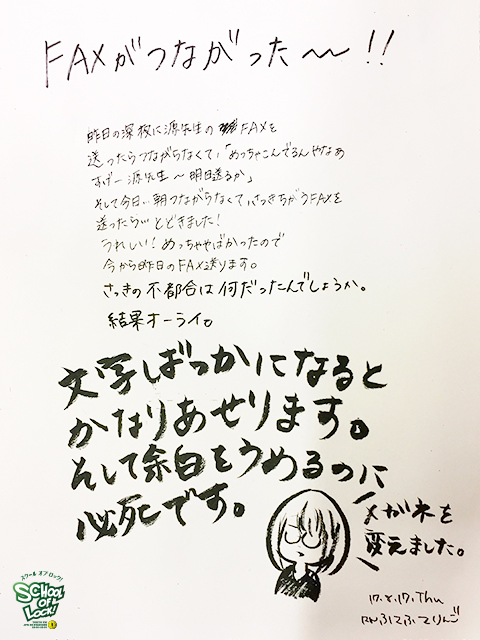 FAXがつながった〜〜!!
昨日の深夜に源先生のFAXを
送ったらつながらなくて、「めっちゃこんでるんやなあ
すげー源先生〜明日送るか」
そして今日…朝つながらなくて、さっきちがうFAXを
送ったら…とどきました!
うれしい!めっちゃやばかったので
今から昨日のFAX送ります。
さっきの不都合は何だったんでしょうか。
結果オーライ。
文字ばっかになると
かなりあせります。
そして余白をうめるのに
必死です。
メガネを
変えました。
17.8.17.Thu
RNふてふてりんご
スクール オブ ロック!
SCHOOL
OF
LOCK!